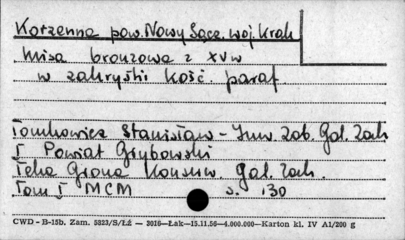 Korzenna pow. Nowy Sącz. woj Krak
Misa bronzowa z XV w
w zakrystii kość. paraf.
Tomkowicz Stanisław - Inw. Zab. Gal. Zach
I Powiat Grybowski
Teka Grona Konserw. Gal. Zach.
Tom I MCM s. 130
CWD - B-15b. Zam. 5823/S/Łź — 3016—Łak—15.11.56—4.000.000—Karton kl. IV A1/200 g